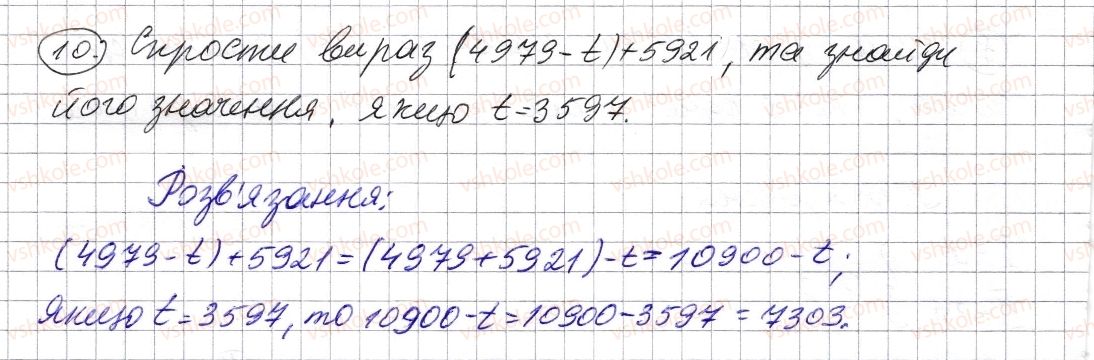 10. Спрости вираз (4979-t)+5921, та знайди
його значення, якщо t=3597.
Розв'язання:
(4979-t)+5921=(4979+5921)-t=10900-t;
Якщо t=3597, то 10900-t=10900-3597=7303.